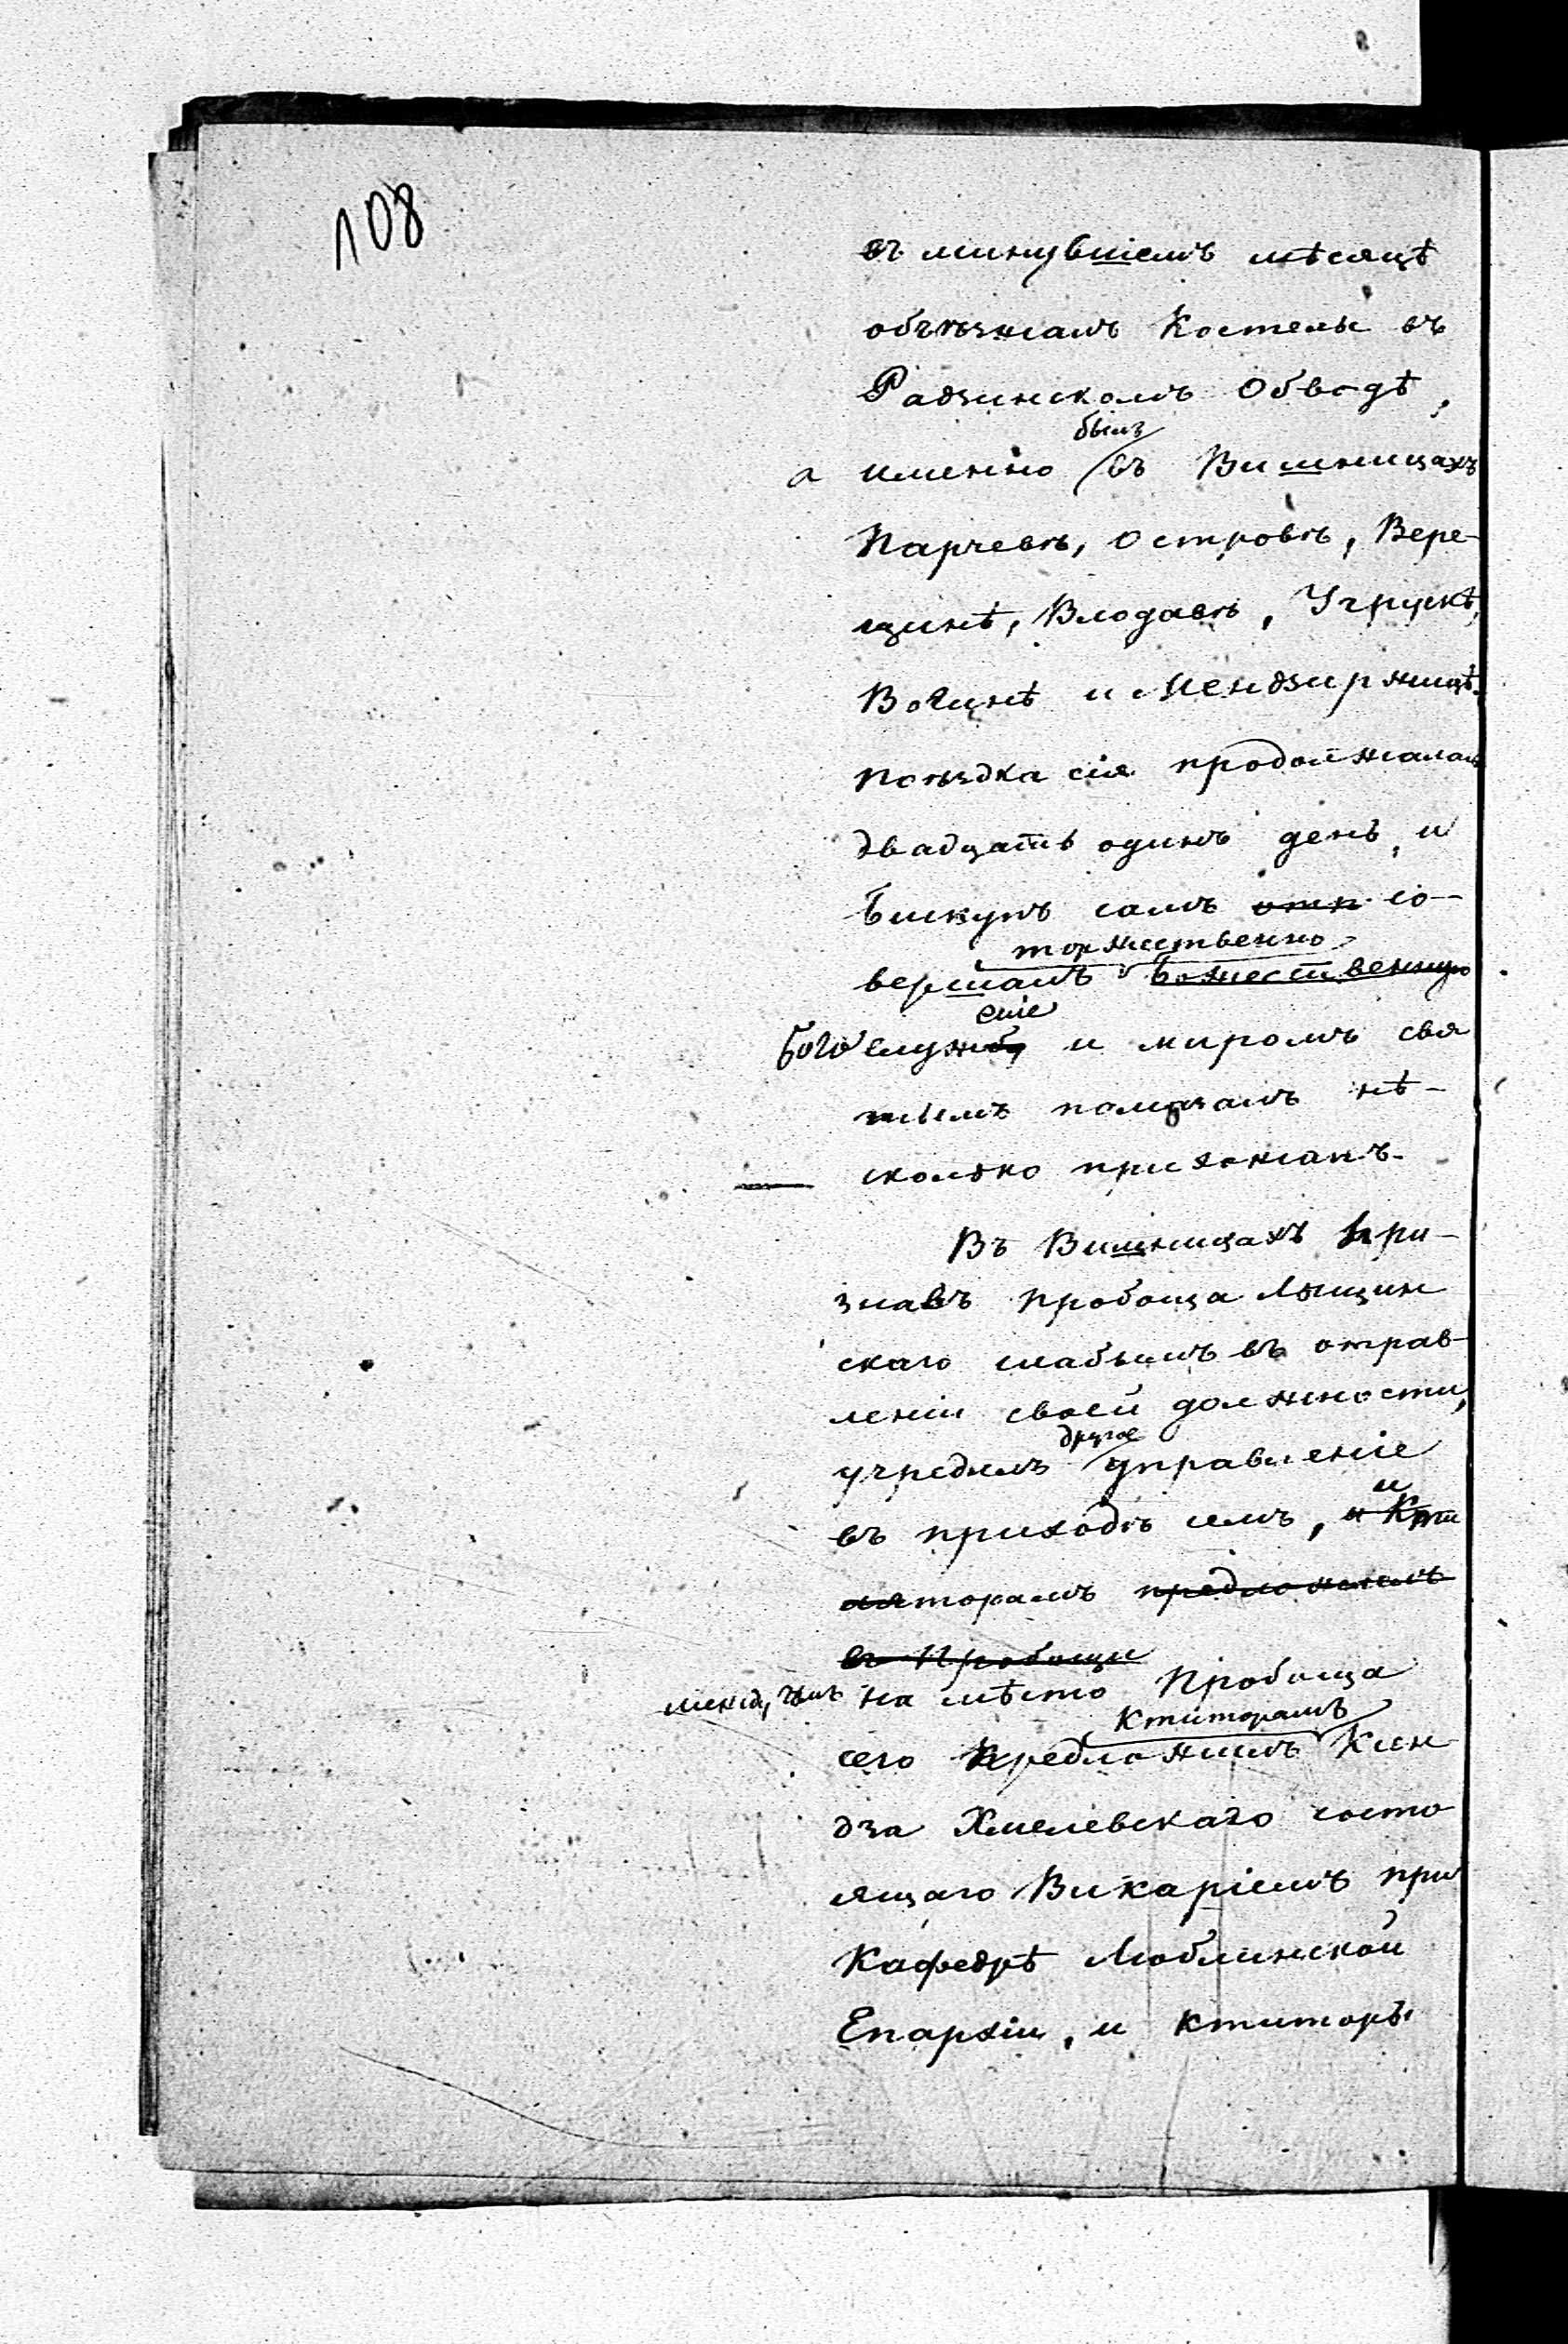 108
въ минувшемъ мѣсяцѣ
объѣзжалъ Костелы въ
Радзинскомъ Обводѣ,
былъ
а именно въ Вишницахъ
Парчевѣ, Островѣ, Вере-
щинѣ, Влодавѣ, Угрускѣ,
Вогинѣ и Мендзиржицѣ.
Поѣздка сія продолжалась
двадцать одинъ день, и
Бискупъ самъ отп со-
торжественно
вершалъ божественную
еніе
Богослужбу и миромъ свя
тымъ помазалъ нѣ-
сколько прихожанъ.
Въ Вишницахъ при-
знавъ Пробоща Лыщин
скаго слабымъ въ отрав-
леніи своей должности,
другое
учредилъ управленіе
и
въ приходѣ семъ, и Кти
торамъ предложилъ
въ Пробощи
на мѣсто Пробоща
Ктиторамъ
сего предложилъ Ксен-
дза Хмелевскаго состо
ящаго Викаріемъ при
Кафедрѣ Люблинской
Епархіи, и ктиторы